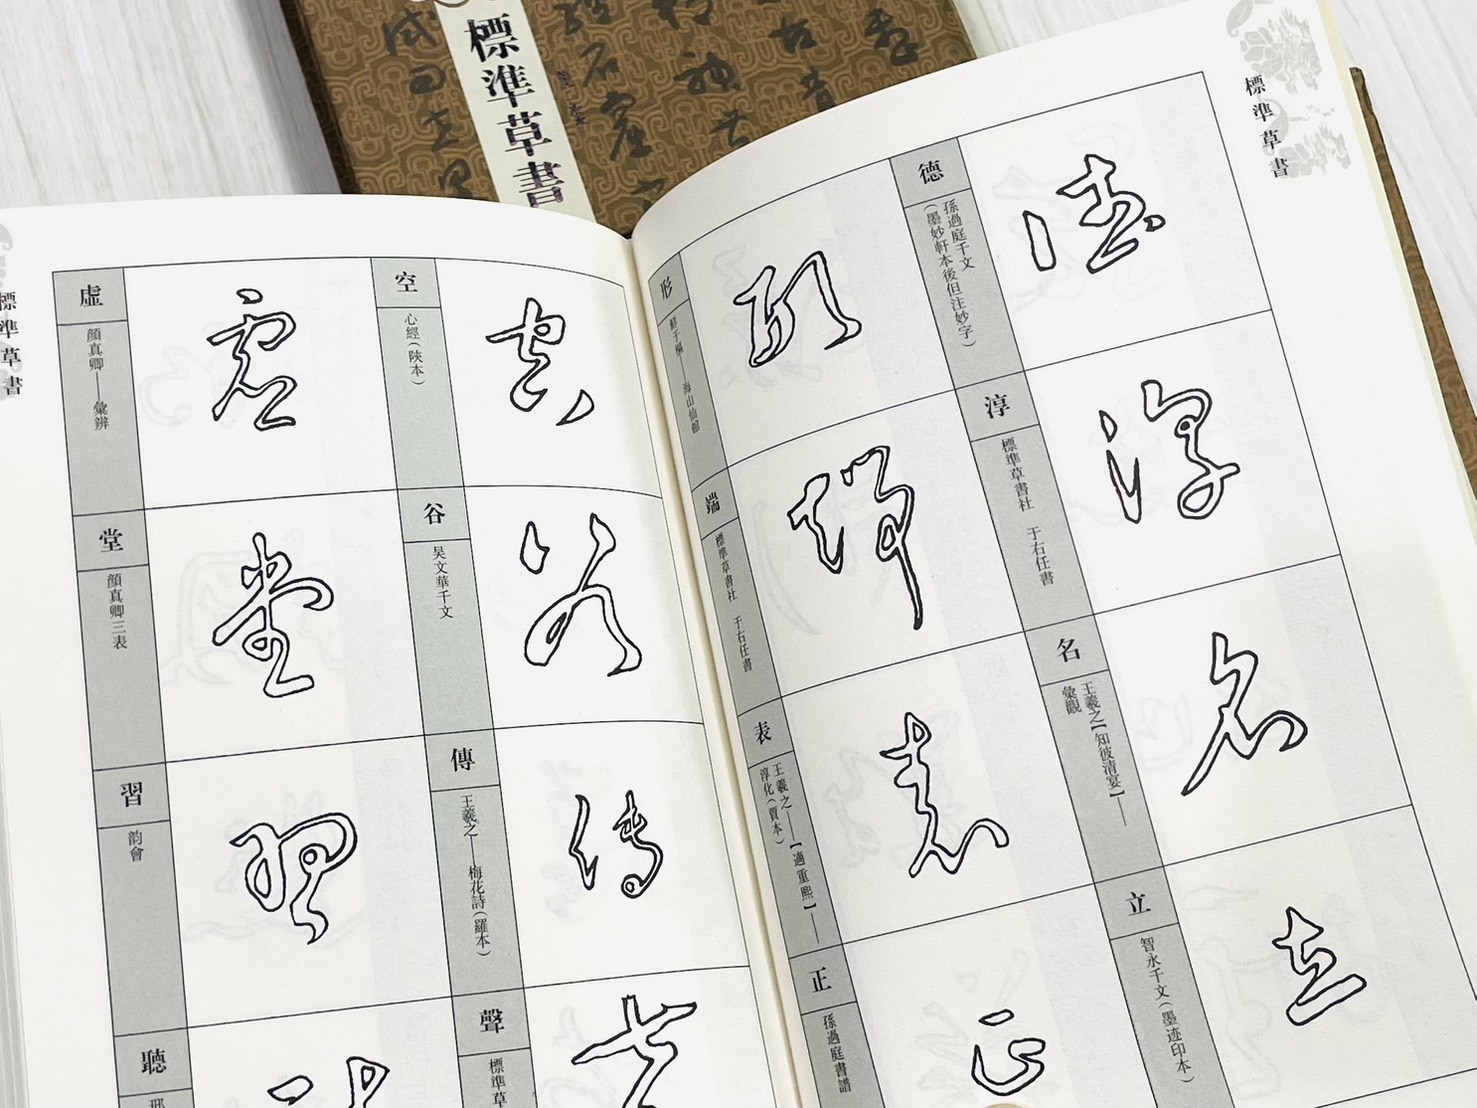 標準草書
標準草書
德
孫過庭千文
(墨妙軒本後但注妙字)
淳
標準草書社 于右任書
名
王羲之【知彼清宴】——
彙觀
立
智永千文(墨迹印本)
形
鮮于樞——海山仙館
端
標準草書社 于右任書
表
王羲之——【適重熙】——
淳化(賈本)
正
孫過庭書譜
空
心經(陝本)
谷
吴文華千文
傳
王羲之——梅花詩(羅本)
聲
標準草
虛
顏真卿——彙辨
堂
顏真卿三表
習
韵會
聽
邢
標準草書